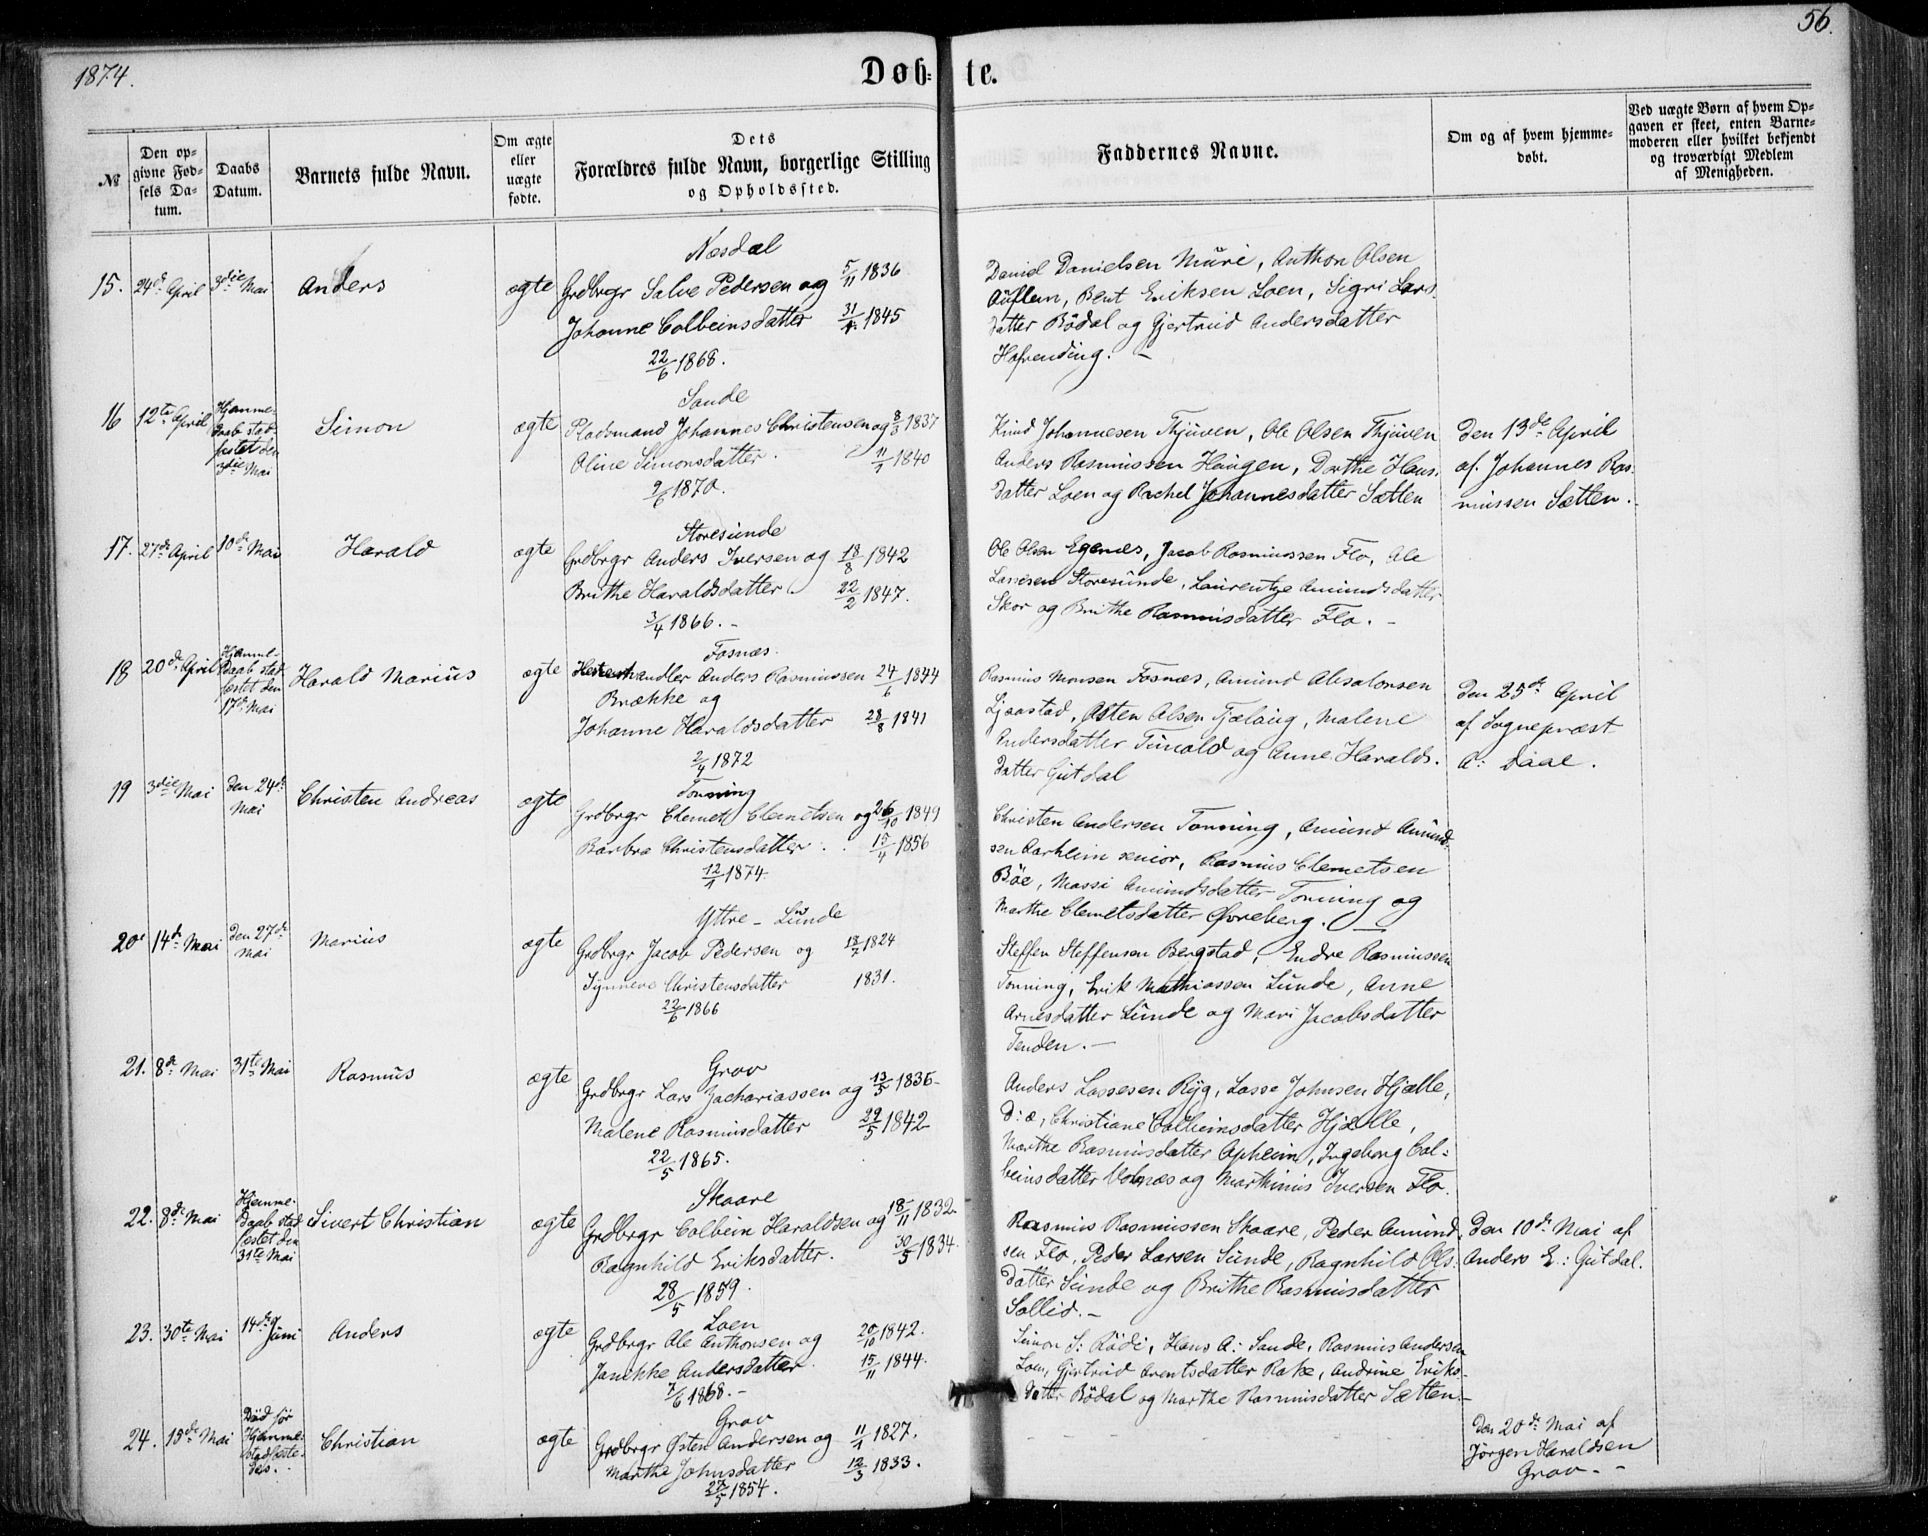 1874.
56.
Døb-
te.
№
Den op-
givne Fød-
sels Da-
tum.
Daabs
Datum.
Barnets fulde Navn.
Om ægte
eller
uægte
fødte.
Dets
Forældres fulde Navn, borgerlige Stilling
og Opholdssted.
Faddernes Navne.
Om og af hvem hjemme-
døbt.
Ved uægte Børn af hvem Op-
gaven er skeet, enten Barne-
moderen eller hvilket bekjendt
og troværdigt Medlem
af Menigheden.
15.
24de April
3die Mai
Anders
ægte
Næsdal
Grdbrgr Salve Pedersen og 5/11 1836
Johanne Colbeinsdatter 1845
22/6 1868.
Daniel Danielsen Muri, Anthon Olsen
Auflem, Bent Eriksen Loen, Sigri Lars-
datter Bödal og Gjertrud Andersdatter
Hafrending. –
16
12te April
Hjemme-
daab stad-
festet den
3die Mai
Simon
ægte
Sande
Pladsmand Johannes Christensen og 8/3 1837
Oline Simonsdatter. 1840
2/6 1870.
Knud Johannesen Thjuven, Ole Olsen Thjuven
Anders Rasmussen Haugen, Dorthe Hans-
datter Loen og Rachel Johannesdatter Sætten
Den 13de April
af Johannes Ras-
mussen Sætten.
17.
27de April
10de Mai
Harald
ægte
Storesunde
Grdbrgr Anders Iversen og 18/8 1842
Brithe Haraldsdatter 22/2 1847.
3/4 1866. –
Ole Olsen Egenes, Jacob Rasmussen Flo, Ole
Lassesen Storesunde, Laurentze Amundsdatter
Skor og Brithe Rasmusdatter Flo. –
18
20de April
Hjemme-
Daab stad-
fæstet den
17de Mai
Harald Marius
ægte
Fosnæs.
Hestehandler Anders Rasmussen 24/6 1844
Brække og
Johanne Haraldsdatter 28/8 1841
2/4 1872
Rasmus Monsen Fosnæs, Amund Absalonsen
Ljosstad, Østen Olsen Fjelaug, Malene
Andersdatter Tunold og Anne Haralds-
datter Gutdal
Den 25de April
af Sognepræst
A: Daae.
19
3die Mai
Den 24de
Mai
Christen Andreas
ægte
Tonning
Grdbrgr Clemet Clemetsen og 26/10 1849
Barbra Christensdatter . . 15/4 1856
12/1 1874.
Christen Andersen Tonning, Amund Amund-
sen Aarheim senior, Rasmus Clemetsen
Böe, Massi Amundsdatter Tonning og
Marthe Clemetsdatter Øvreberg. –
20
14de Mai
Den 27de
Mai
Marius
ægte
Yttre – Lunde
Grdbrgr Jacob Pedersen og 18/7 1824
Synneve Christensdatter 1831.
22/6 1866
Steffen Steffensen Bergstad, Endre Rasmussen
Tonning, Erik Mathiassen Lunde, Anne
Arnesdatter Lunde og Mari Jacobsdatter
Tenden. –
21.
8de Mai
31te Mai
Rasmus
ægte
Grov
Grdbrgr Lars Zachariassen og 13/5 1836
Malene Rasmusdatter 29/5 1842
22/5 1865.
Anders Lassesen Ryg, Lasse Johnsen Hjelle,
d: æ, Christiane Colbeinsdatter Hjelle,
Marthe Rasmusdatter Opheim, Ingeborg Col-
beinsdatter Volnæs og Marthinus Iversen Flo.
22.
8de Mai
Hjemme-
Daab stad-
festet den
31te Mai
Sivert Christian
ægte
Skaare
Grdbrgr Colbein Haraldsen og 18/11 1832
Ragnhild Eriksdatter. 30/5 1834.
28/5 1859.
Rasmus Rasmussen Skaare, Peder Amund-
sen Flo, Peder Larsen Sunde, Ragnhild Ols-
datter Sunde og Brithe Rasmusdatter
Sollid. –
Den 10de Mai af
Anders E: Gutdal.
23.
30te Mai
14de
Juni
Anders
ægte
Loen
Grdbrgr Ole Anthonsen og 20/10 1842.
Janikke Andersdatter. 15/11 1844.
7/6 1868. –
Simon S: Rödi, Hans A: Sande, Rasmus Andersen
Loen, Gjertrud Arentsdatter Rake, Andrine Eriks-
datter Bödal og Marthe Rasmusdatter Sætten. –
24.
15de Mai
Död før
Hjemme-
stadfæste-
des.
Christian
ægte
Grov
Grdbrgr Østen Andersen og 11/1 1827.
Marthe Johnsdatter 12/3 1833.
27/5 1854.
Den 20de Mai af
Jørgen Haraldsen
Grov. –